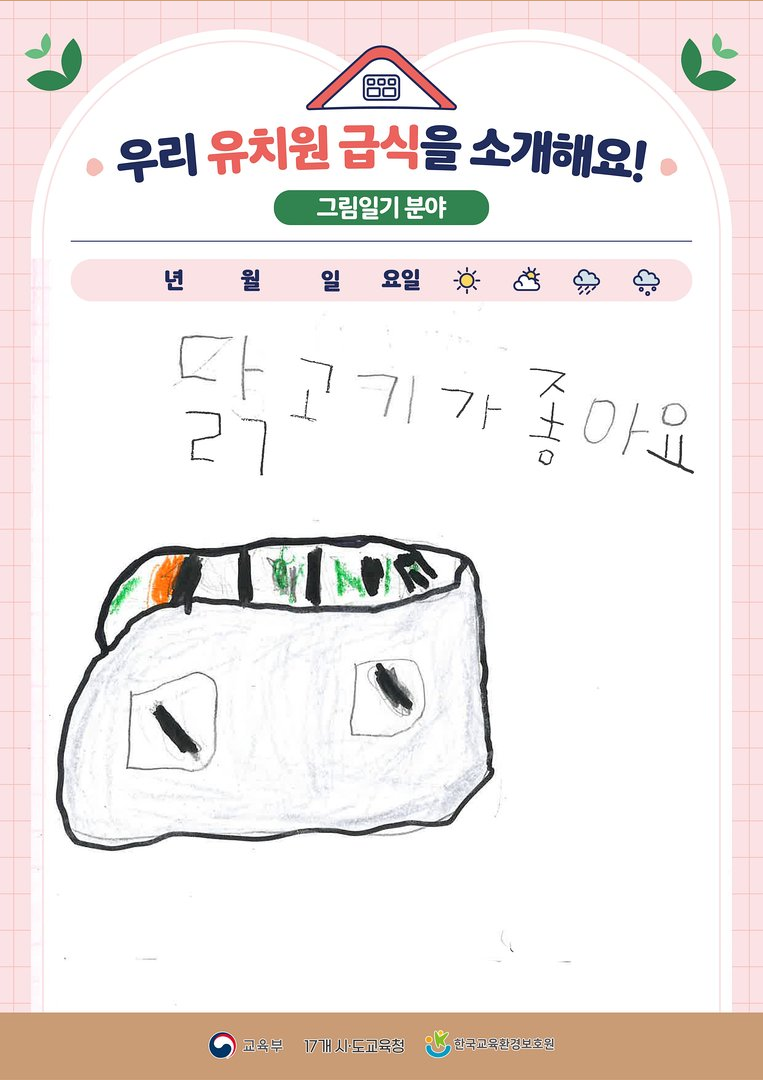 우리 유치원 급식을 소개해요!
그림일기 분야
년 월 일 요일
닭고기가 좋아요
교육부 17개 시·도교육청 한국교육환경보호원